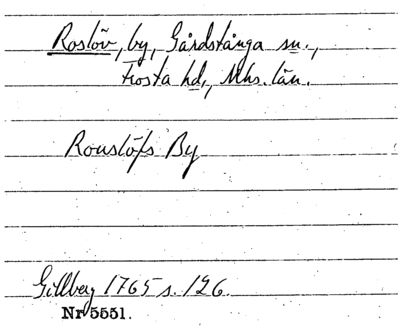 Roslöv, by, Gårdstånga sn.,
Frosta hd., Mhs. län.
Rouslöfs By
Gillberg 1765 s. 126.
Nr 5551.